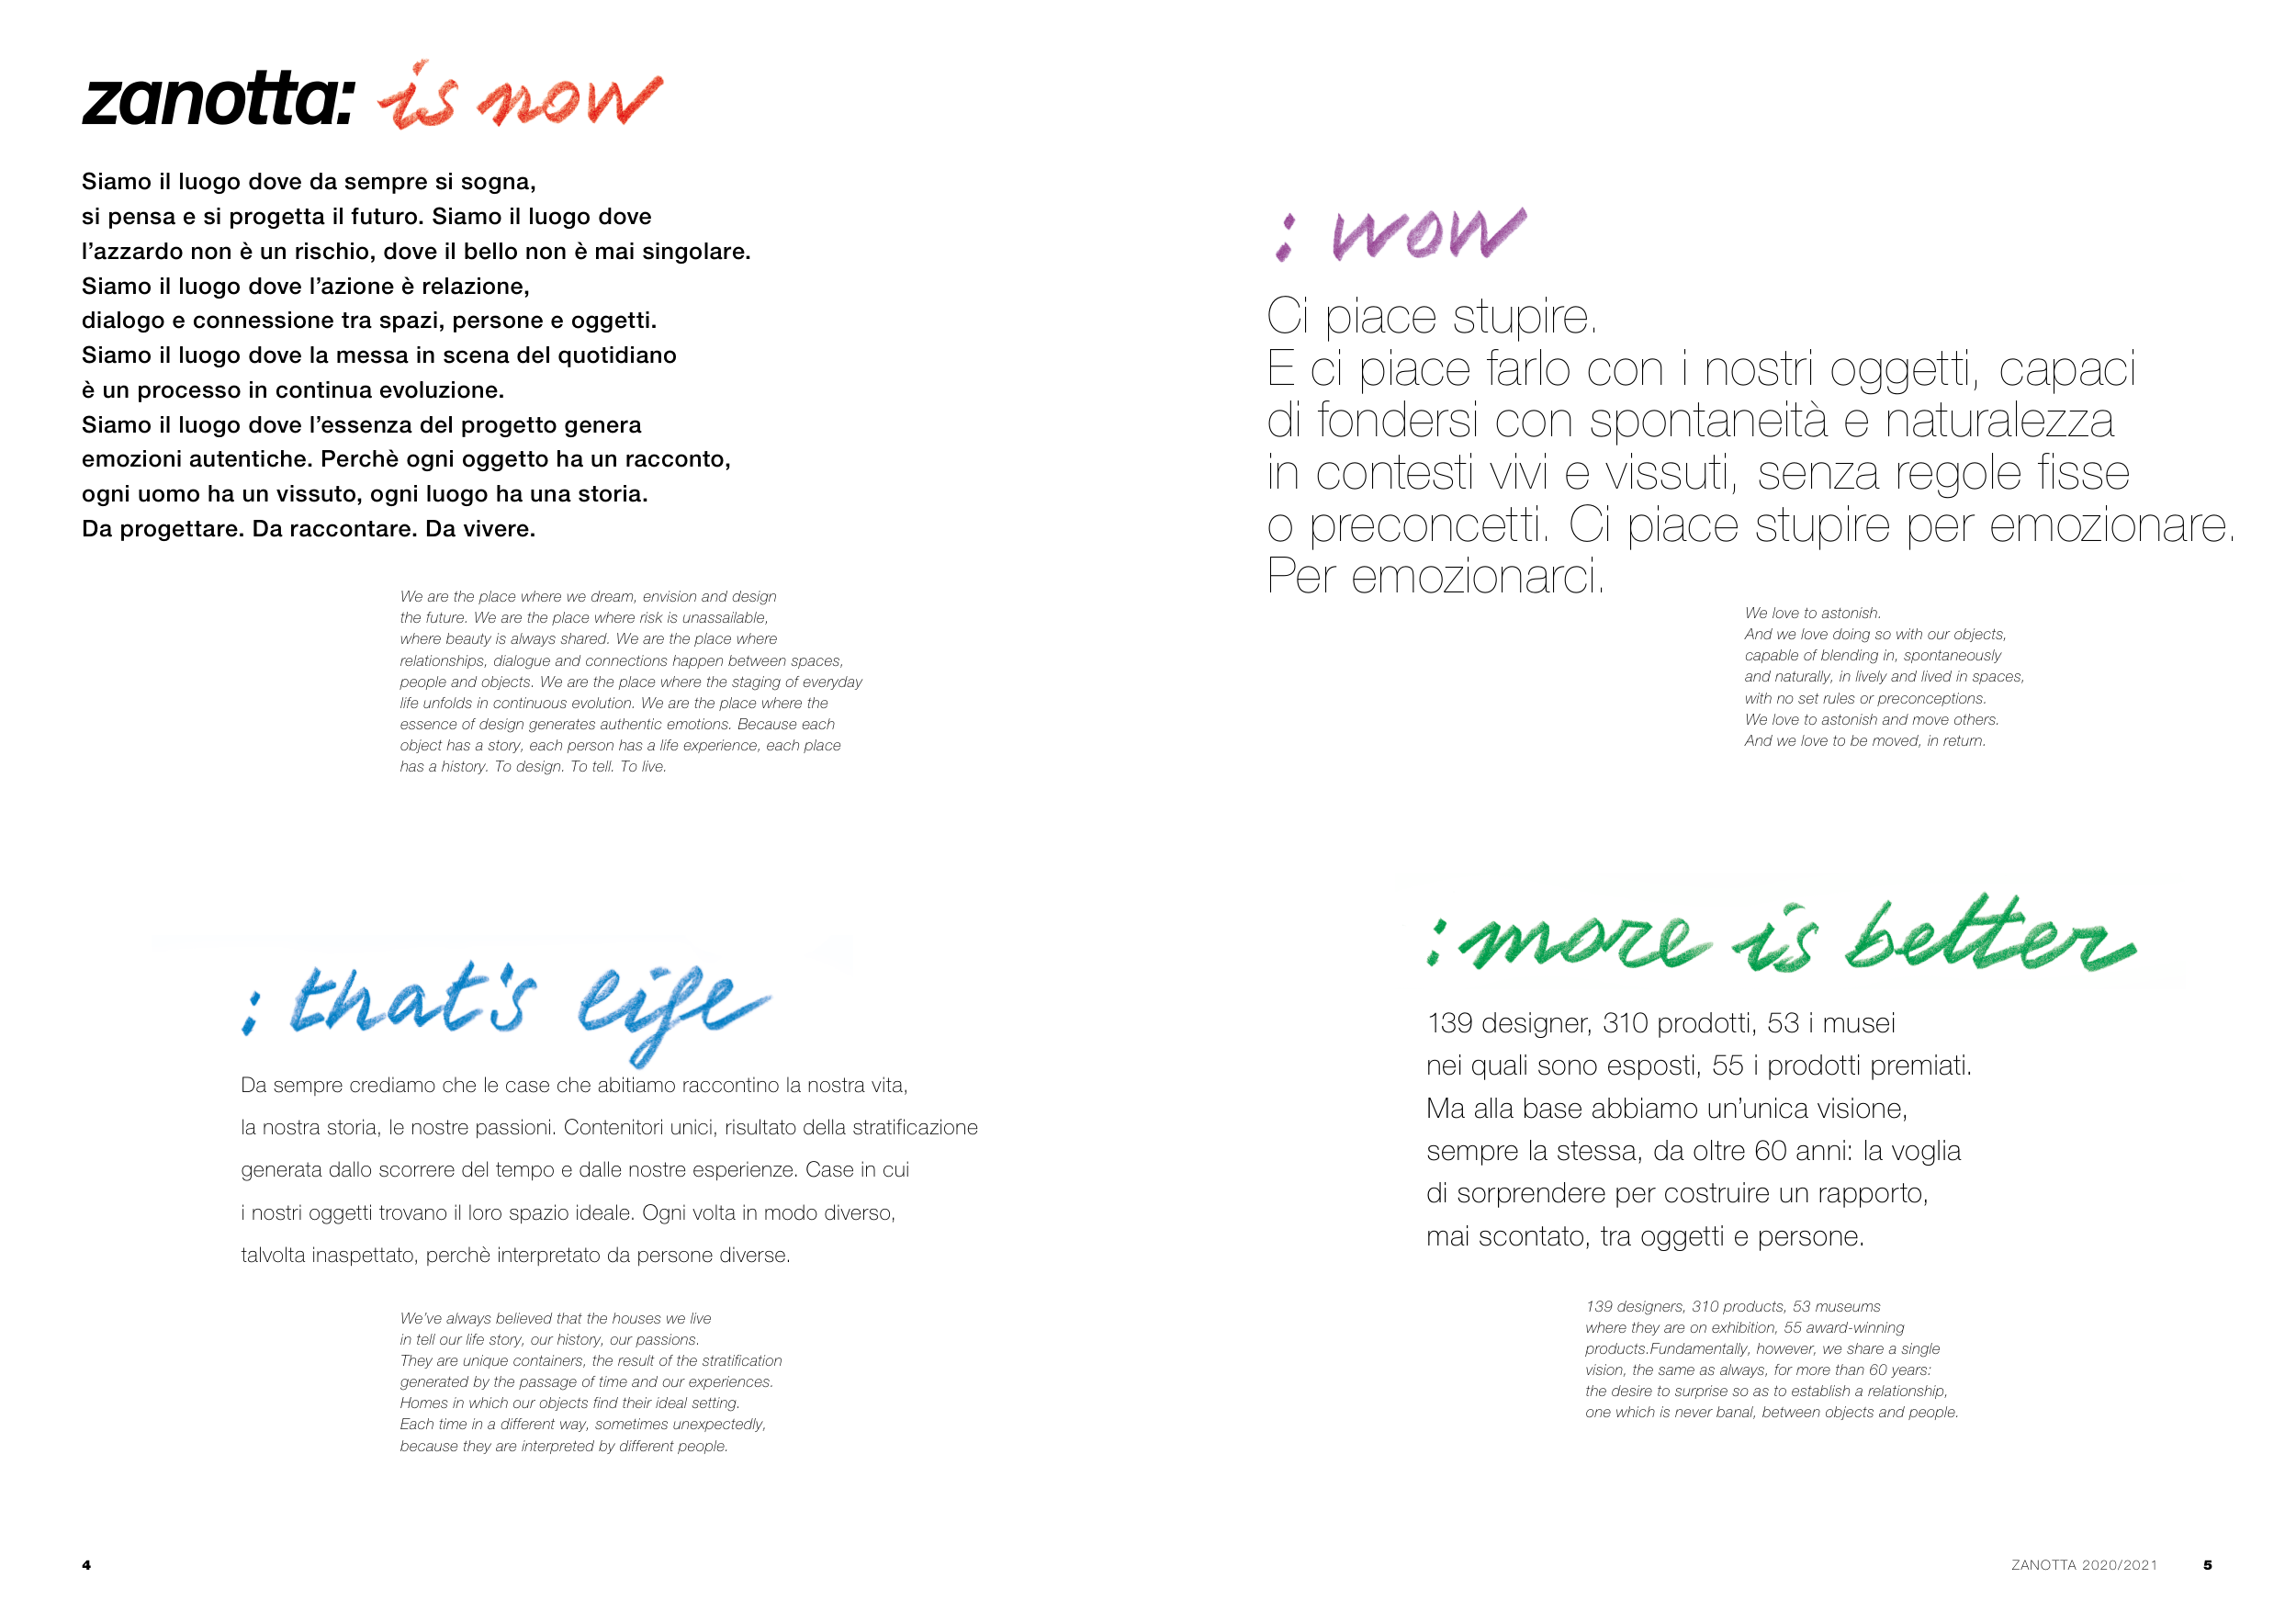 zanotta: is now
Siamo il luogo dove da sempre si sogna,
si pensa e si progetta il futuro. Siamo il luogo dove
l’azzardo non è un rischio, dove il bello non è mai singolare.
Siamo il luogo dove l’azione è relazione,
dialogo e connessione tra spazi, persone e oggetti.
Siamo il luogo dove la messa in scena del quotidiano
è un processo in continua evoluzione.
Siamo il luogo dove l’essenza del progetto genera
emozioni autentiche. Perchè ogni oggetto ha un racconto,
ogni uomo ha un vissuto, ogni luogo ha una storia.
Da progettare. Da raccontare. Da vivere.
We are the place where we dream, envision and design
the future. We are the place where risk is unassailable,
where beauty is always shared. We are the place where
relationships, dialogue and connections happen between spaces,
people and objects. We are the place where the staging of everyday
life unfolds in continuous evolution. We are the place where the
essence of design generates authentic emotions. Because each
object has a story, each person has a life experience, each place
has a history. To design. To tell. To live.
: that's life
Da sempre crediamo che le case che abitiamo raccontino la nostra vita,
la nostra storia, le nostre passioni. Contenitori unici, risultato della stratificazione
generata dallo scorrere del tempo e dalle nostre esperienze. Case in cui
i nostri oggetti trovano il loro spazio ideale. Ogni volta in modo diverso,
talvolta inaspettato, perchè interpretato da persone diverse.
We’ve always believed that the houses we live
in tell our life story, our history, our passions.
They are unique containers, the result of the stratification
generated by the passage of time and our experiences.
Homes in which our objects find their ideal setting.
Each time in a different way, sometimes unexpectedly,
because they are interpreted by different people.
4
: wow
Ci piace stupire.
E ci piace farlo con i nostri oggetti, capaci
di fondersi con spontaneità e naturalezza
in contesti vivi e vissuti, senza regole fisse
o preconcetti. Ci piace stupire per emozionare.
Per emozionarci.
We love to astonish.
And we love doing so with our objects,
capable of blending in, spontaneously
and naturally, in lively and lived in spaces,
with no set rules or preconceptions.
We love to astonish and move others.
And we love to be moved, in return.
: more is better
139 designer, 310 prodotti, 53 i musei
nei quali sono esposti, 55 i prodotti premiati.
Ma alla base abbiamo un’unica visione,
sempre la stessa, da oltre 60 anni: la voglia
di sorprendere per costruire un rapporto,
mai scontato, tra oggetti e persone.
139 designers, 310 products, 53 museums
where they are on exhibition, 55 award-winning
products.Fundamentally, however, we share a single
vision, the same as always, for more than 60 years:
the desire to surprise so as to establish a relationship,
one which is never banal, between objects and people.
ZANOTTA 2020/2021 5